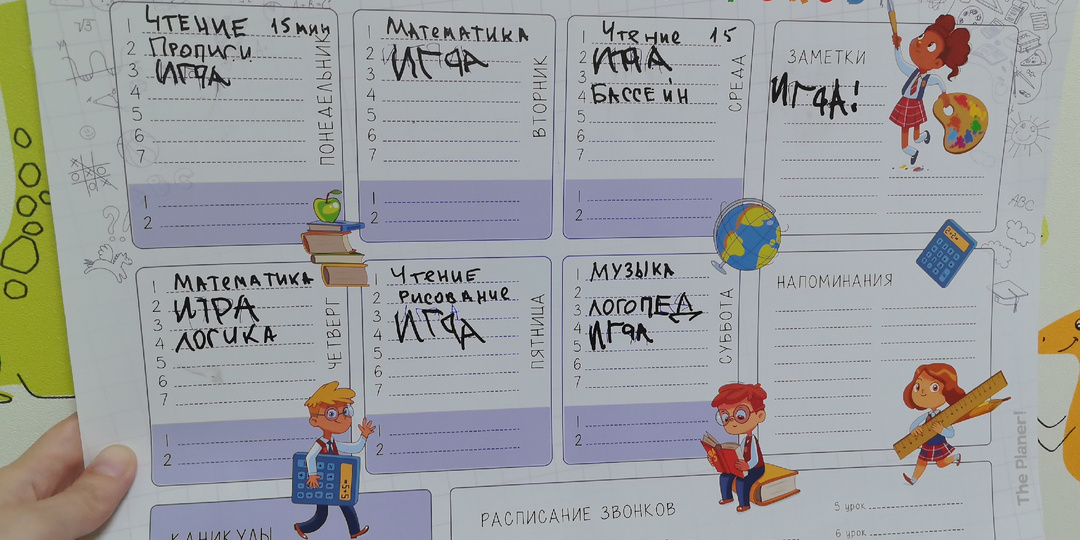 1 Чтение 15 мин
2 Прописи
3 ИГРА
4
5
6
7
1
2
ПОНЕДЕЛЬНИК
1 Математика
2 ИГРА
3
4
5
6
7
1
2
ВТОРНИК
1 Чтение 15
2 ИГРА
3
4 БАССЕЙН
5
6
7
1
2
СРЕДА
ЗАМЕТКИ
ИГРА!
1 Математика
2 ИГРА
3
4 ЛОГИКА
5
6
7
1
2
ЧЕТВЕРГ
1 Чтение
2 РИСОВАНИЕ
3 ИГРА
4
5
6
7
1
2
ПЯТНИЦА
1 МУЗЫКА
2
3 ЛОГОПЕД
4 ИГРА
5
6
7
1
2
СУББОТА
НАПОМИНАНИЯ
КАНИКУЛЫ
РАСПИСАНИЕ ЗВОНКОВ
5 урок
6 урок
The Planer!
ABC
√3
2×2=
5×5=